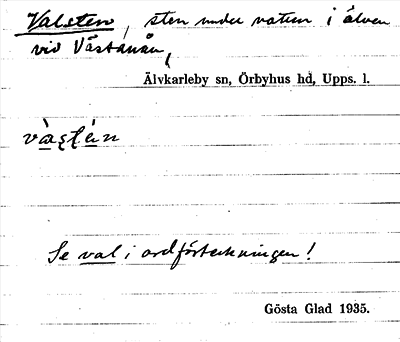 Valsten, sten under vatten i älven
vid Västanån,
Älvkarleby sn, Örbyhus hd, Upps. l.
Se val i ordförteckningen!
Gösta Glad 1935.